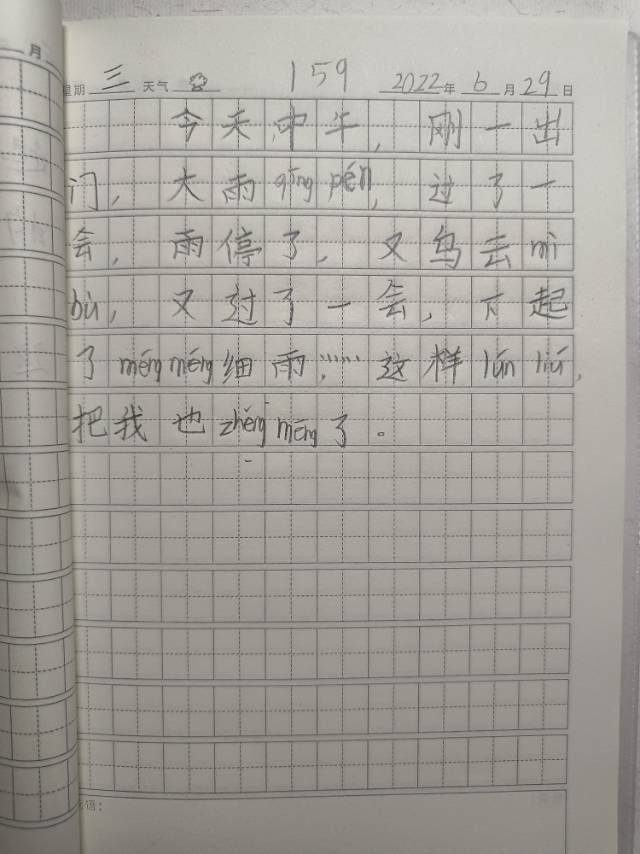 月
星期 三 天气 159 2022年 6月29日
今天中午，刚一出
门，大雨qīng pén，过了一
会，雨停了，又乌云mì
bù，又过了一会，下起
了méng méng细雨……这样lún liú，
把我也zhěng mēng了。
语：